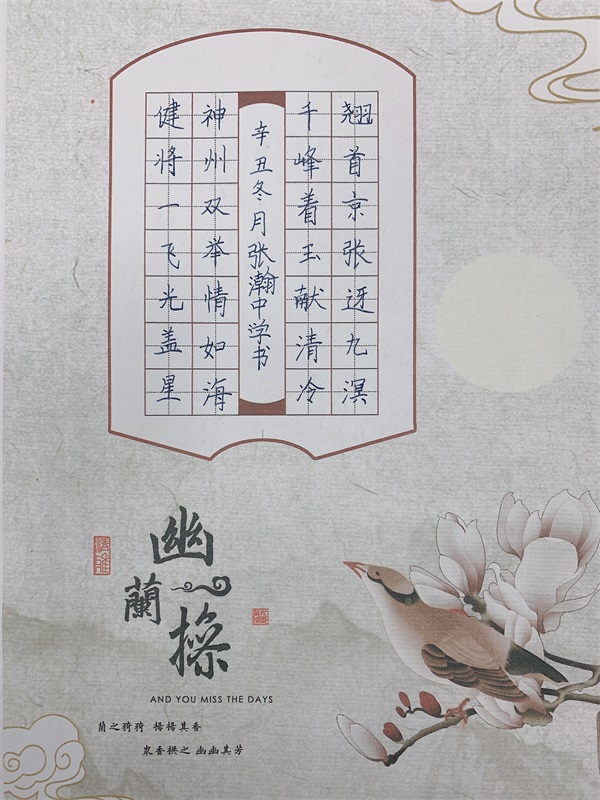 翘首京张迓九溟
千峰着玉献清冷
辛丑冬月张瀚中学书
神州双举情如海
健将一飞光盖星
幽
蘭
操
AND YOU MISS THE DAYS
蘭之猗猗 揚揚其香
衆香拱之 幽幽其芳